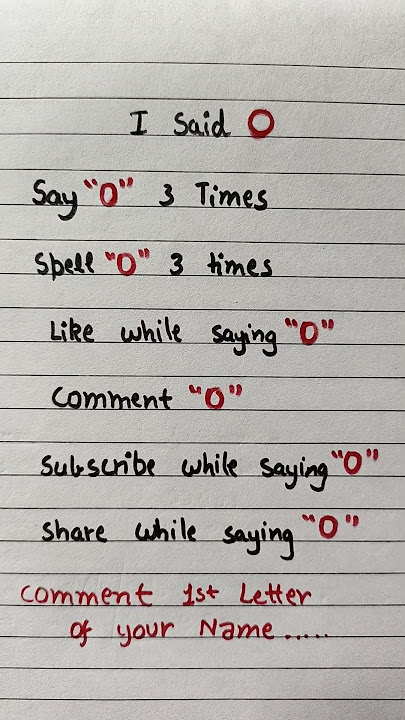 I Said O
Say "O" 3 Times
Spell "O" 3 times
Like while saying "O"
Comment "O"
Subscribe while saying "O"
Share while saying "O"
Comment 1st Letter
of your Name.....